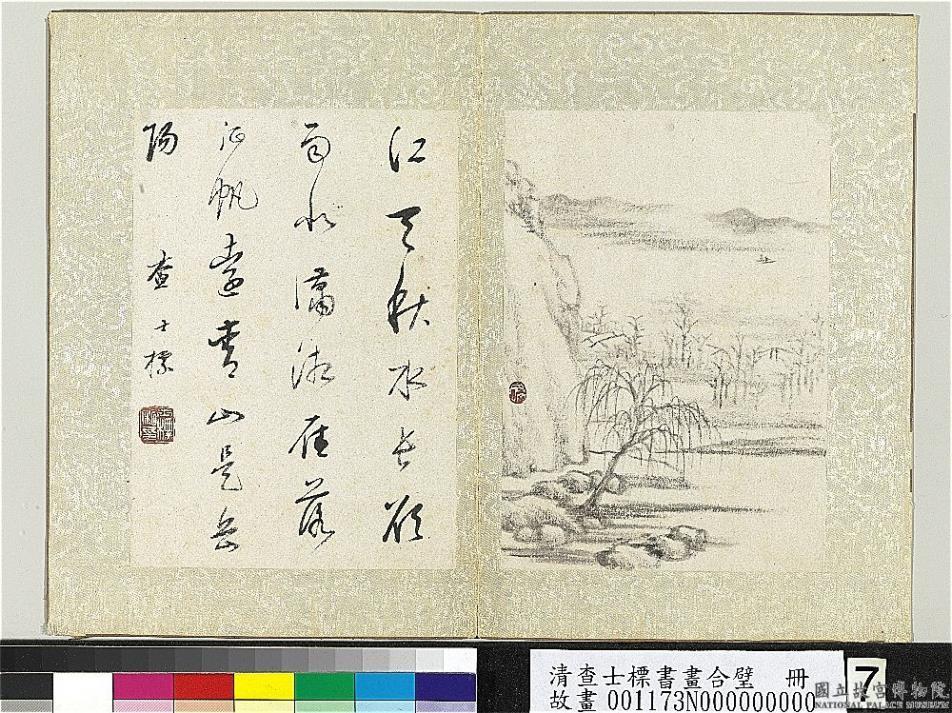 江天秋水長欲
雨似瀟湘雁落
征帆遠青山是岳
陽
查士標
清查士標書畫合璧 冊
故畫 001173N000000000
7
國立故宮博物院
NATIONAL PALACE MUSEUM